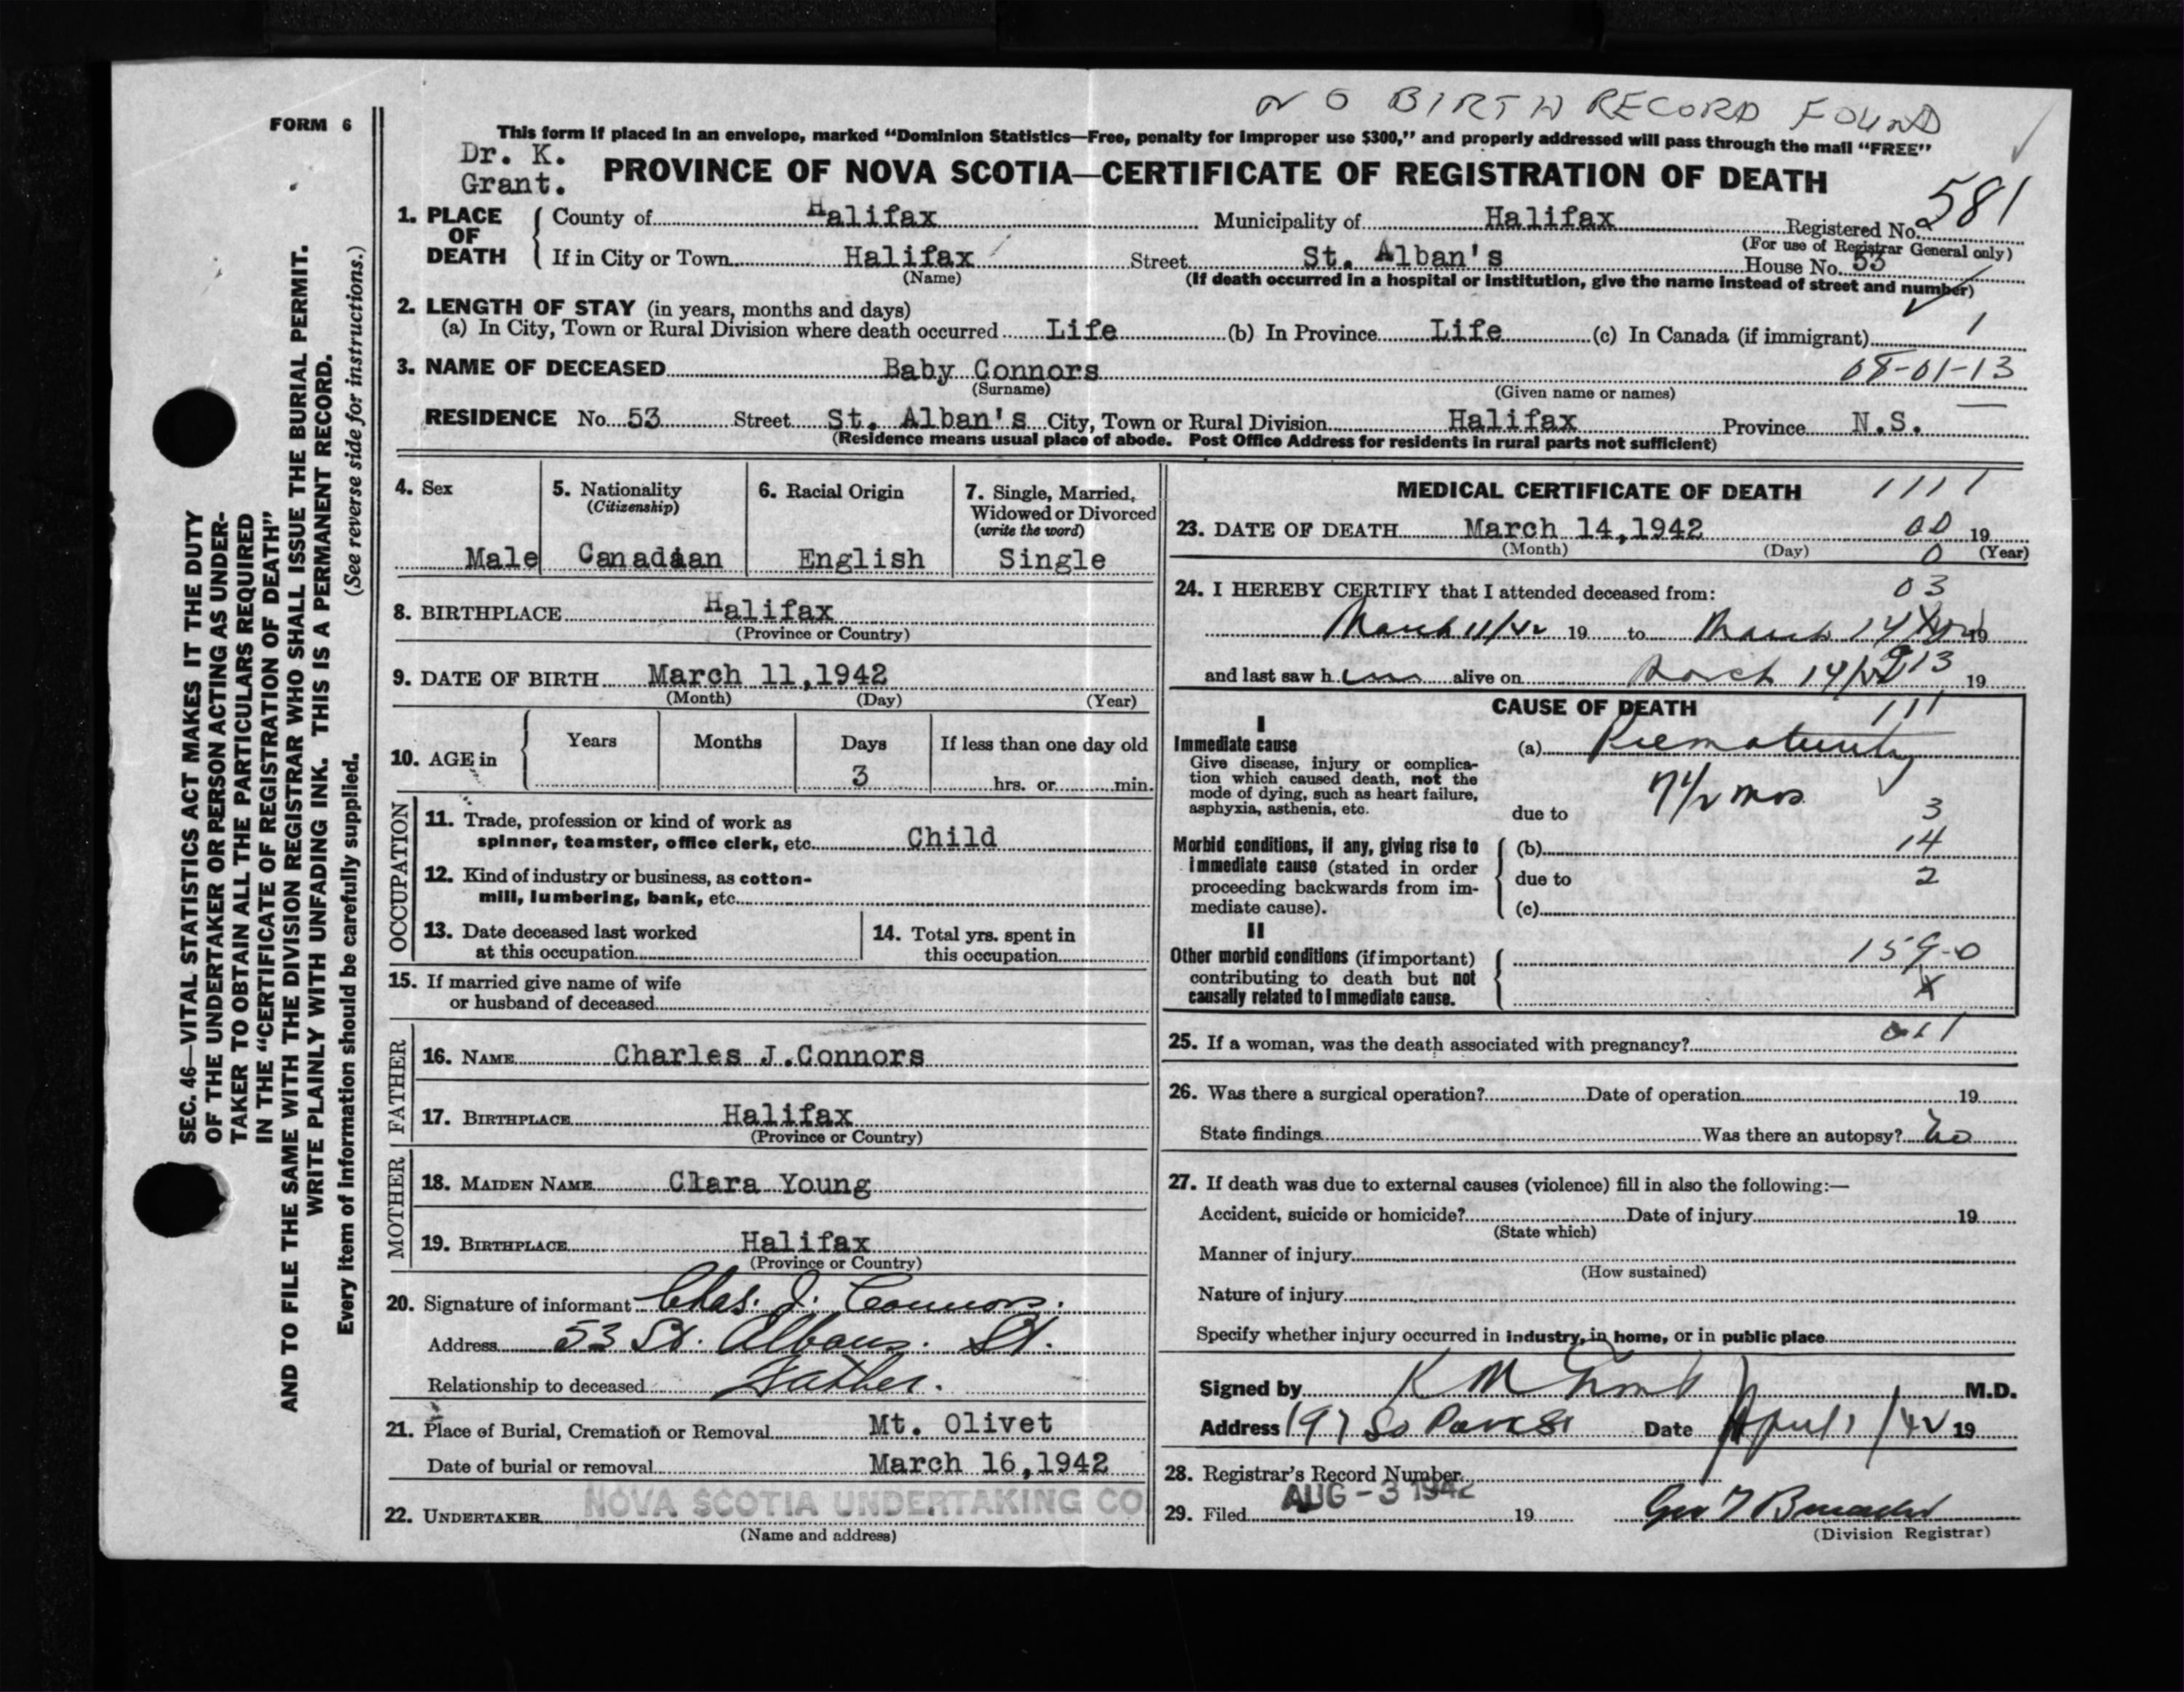 NO BIRTH RECORD FOUND
FORM 6
This form if placed in an envelope, marked “Dominion Statistics—Free, penalty for improper use $300,” and properly addressed will pass through the mail “FREE”
Dr. K.
Grant.
PROVINCE OF NOVA SCOTIA—CERTIFICATE OF REGISTRATION OF DEATH
1. PLACE OF DEATH
County of Halifax Municipality of Halifax Registered No. 581
(For use of Registrar General only)
If in City or Town Halifax Street St. Alban's House No. 53
(Name) (If death occurred in a hospital or institution, give the name instead of street and number)
2. LENGTH OF STAY (in years, months and days)
(a) In City, Town or Rural Division where death occurred Life (b) In Province Life (c) In Canada (if immigrant) 1
3. NAME OF DECEASED Baby Connors 08-01-13
(Surname) (Given name or names)
RESIDENCE No. 53 Street St. Alban's City, Town or Rural Division Halifax Province N.S.
(Residence means usual place of abode. Post Office Address for residents in rural parts not sufficient)
4. Sex
Male
5. Nationality
(Citizenship)
Canadian
6. Racial Origin
English
7. Single, Married,
Widowed or Divorced
(write the word)
Single
8. BIRTHPLACE Halifax
(Province or Country)
9. DATE OF BIRTH March 11,1942
(Month) (Day) (Year)
10. AGE in
Years Months Days If less than one day old
3 hrs. or min.
OCCUPATION
11. Trade, profession or kind of work as
spinner, teamster, office clerk, etc. Child
12. Kind of industry or business, as cotton-
mill, lumbering, bank, etc.
13. Date deceased last worked
at this occupation
14. Total yrs. spent in
this occupation
15. If married give name of wife
or husband of deceased
FATHER
16. NAME Charles J.Connors
17. BIRTHPLACE Halifax
(Province or Country)
MOTHER
18. MAIDEN NAME Clara Young
19. BIRTHPLACE Halifax
(Province or Country)
20. Signature of informant Chas. J. Connors.
Address 53 St. Albans. St.
Relationship to deceased Father.
21. Place of Burial, Cremation or Removal Mt. Olivet
Date of burial or removal March 16,1942
22. UNDERTAKER NOVA SCOTIA UNDERTAKING CO
(Name and address)
MEDICAL CERTIFICATE OF DEATH 1111
23. DATE OF DEATH March 14,1942 00 19
(Month) (Day) 0 (Year)
24. I HEREBY CERTIFY that I attended deceased from: 03
March 11/42 19 to March 14 19
and last saw h alive on March 14/42 13 19
CAUSE OF DEATH 111
I
Immediate cause
Give disease, injury or complica-
tion which caused death, not the
mode of dying, such as heart failure,
asphyxia, asthenia, etc.
(a) Prematurity
7 1/2 mos.
due to 3
Morbid conditions, if any, giving rise to
immediate cause (stated in order
proceeding backwards from im-
mediate cause).
(b) 14
due to 2
(c)
II
Other morbid conditions (if important)
contributing to death but not
causally related to immediate cause.
159-0
X
25. If a woman, was the death associated with pregnancy? 011
26. Was there a surgical operation? Date of operation 19
State findings Was there an autopsy? No
27. If death was due to external causes (violence) fill in also the following:—
Accident, suicide or homicide? Date of injury 19
(State which)
Manner of injury
(How sustained)
Nature of injury
Specify whether injury occurred in industry, in home, or in public place
Signed by K M Grant M.D.
Address 197 So Park St Date April 1/42 19
28. Registrar's Record Number
29. Filed AUG -3 1942 19
(Division Registrar)
SEC. 46—VITAL STATISTICS ACT MAKES IT THE DUTY
OF THE UNDERTAKER OR PERSON ACTING AS UNDER-
TAKER TO OBTAIN ALL THE PARTICULARS REQUIRED
IN THE “CERTIFICATE OF REGISTRATION OF DEATH”
AND TO FILE THE SAME WITH THE DIVISION REGISTRAR WHO SHALL ISSUE THE BURIAL PERMIT.
WRITE PLAINLY WITH UNFADING INK. THIS IS A PERMANENT RECORD.
Every item of information should be carefully supplied. (See reverse side for instructions.)